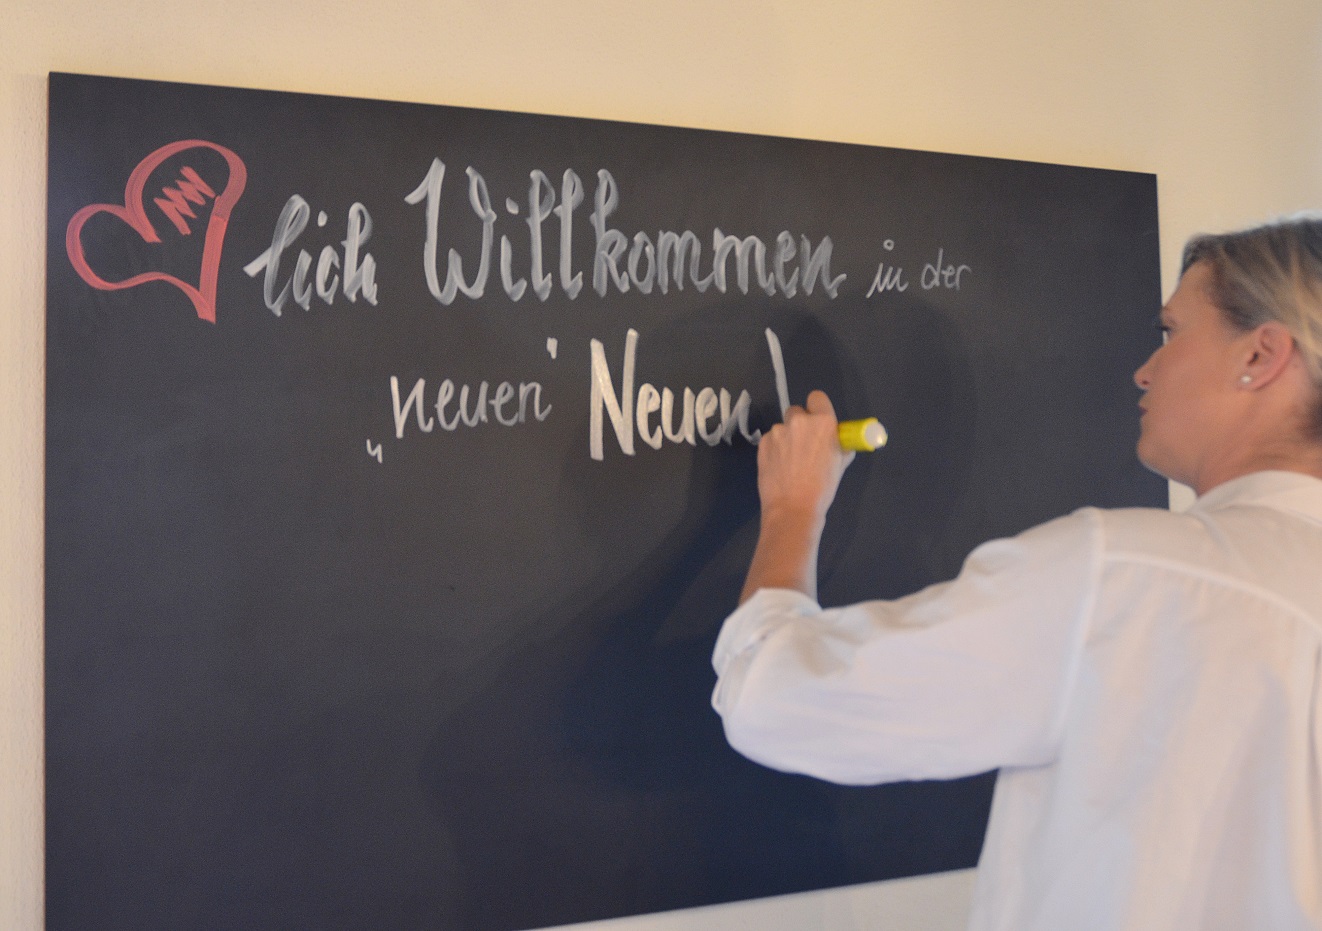 lich Willkommen in der
„neuen" Neuen!